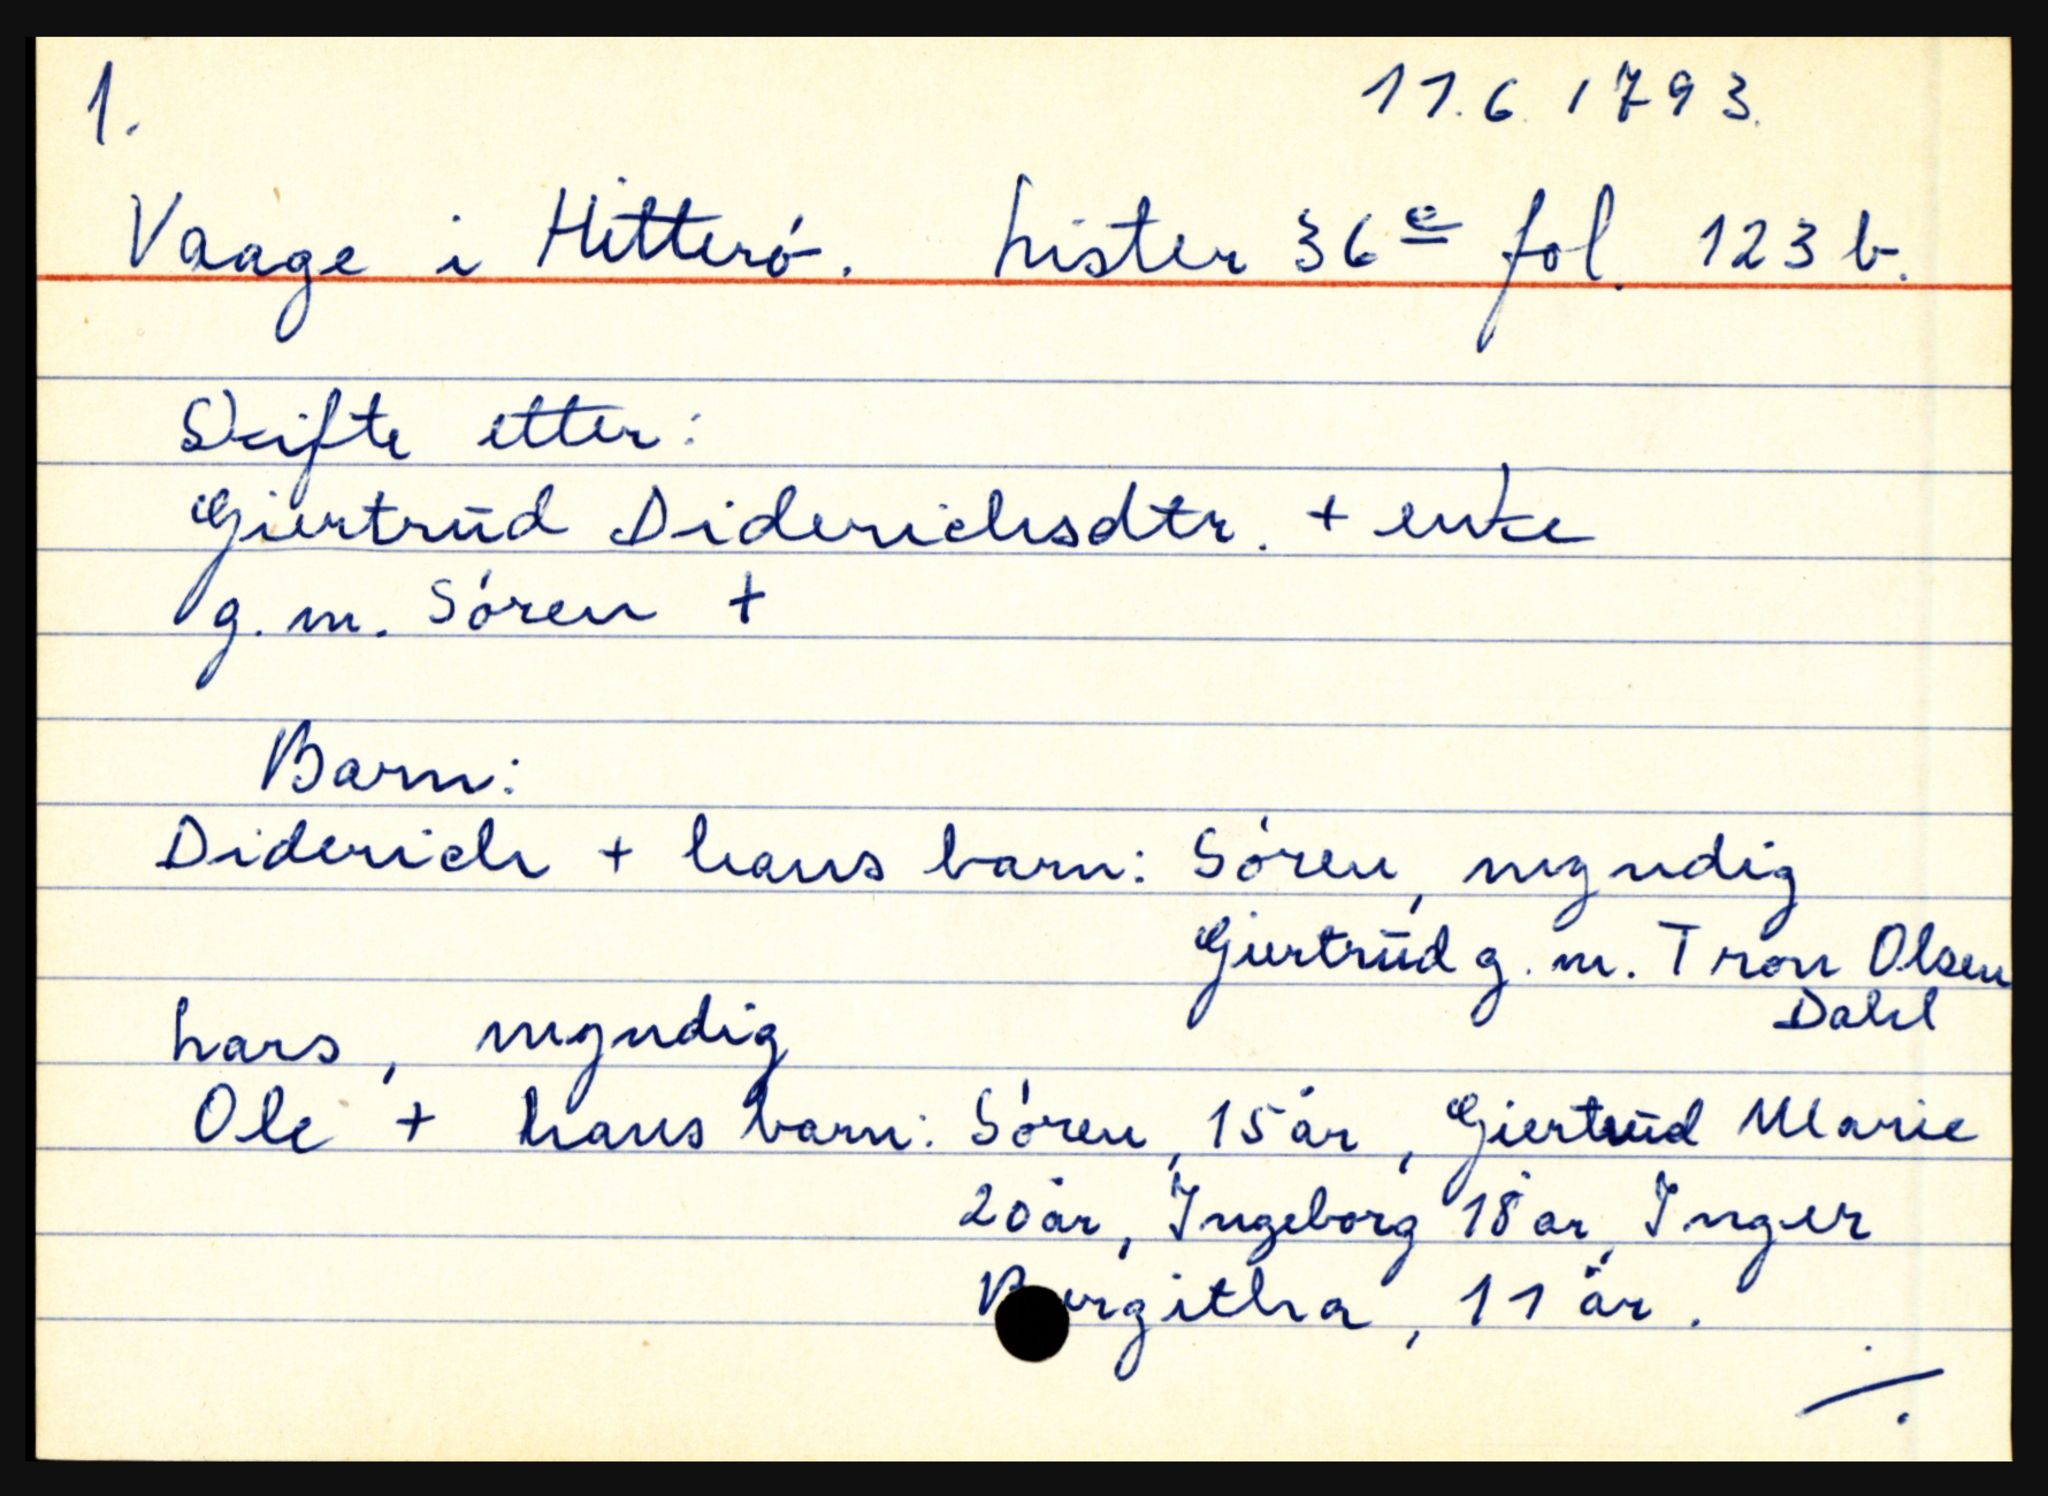 1. 11.6.1793.
Vaage i Hitterö. Lister 36e fol. 123 b.
Skifte etter:
Giertrud Diderichsdtr. + enke
g.m. Sören +
Barn:
Diderich + hans barn: Sören, myndig
Giertrud g.m. Tron Olsen
Dahl
Lars, myndig
Ole + hans barn: Sören, 15 år, Giertrud Marie
20 år, Ingeborg 18 år, Inger
11 år.